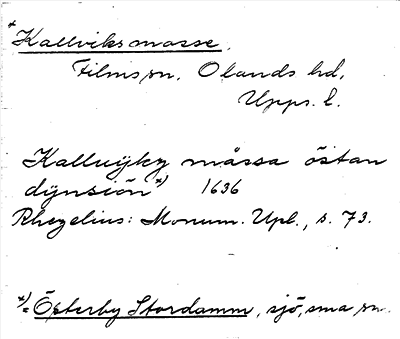 *Kallviksmosse.
Films sn, Olands hd,
Upps. l.
Kalluijky måssa östan
dijnsiön x) 1636
Rhezelius: Monum. Upl., s. 73.
x) = Österby Stordamm, sjö, sma sn.